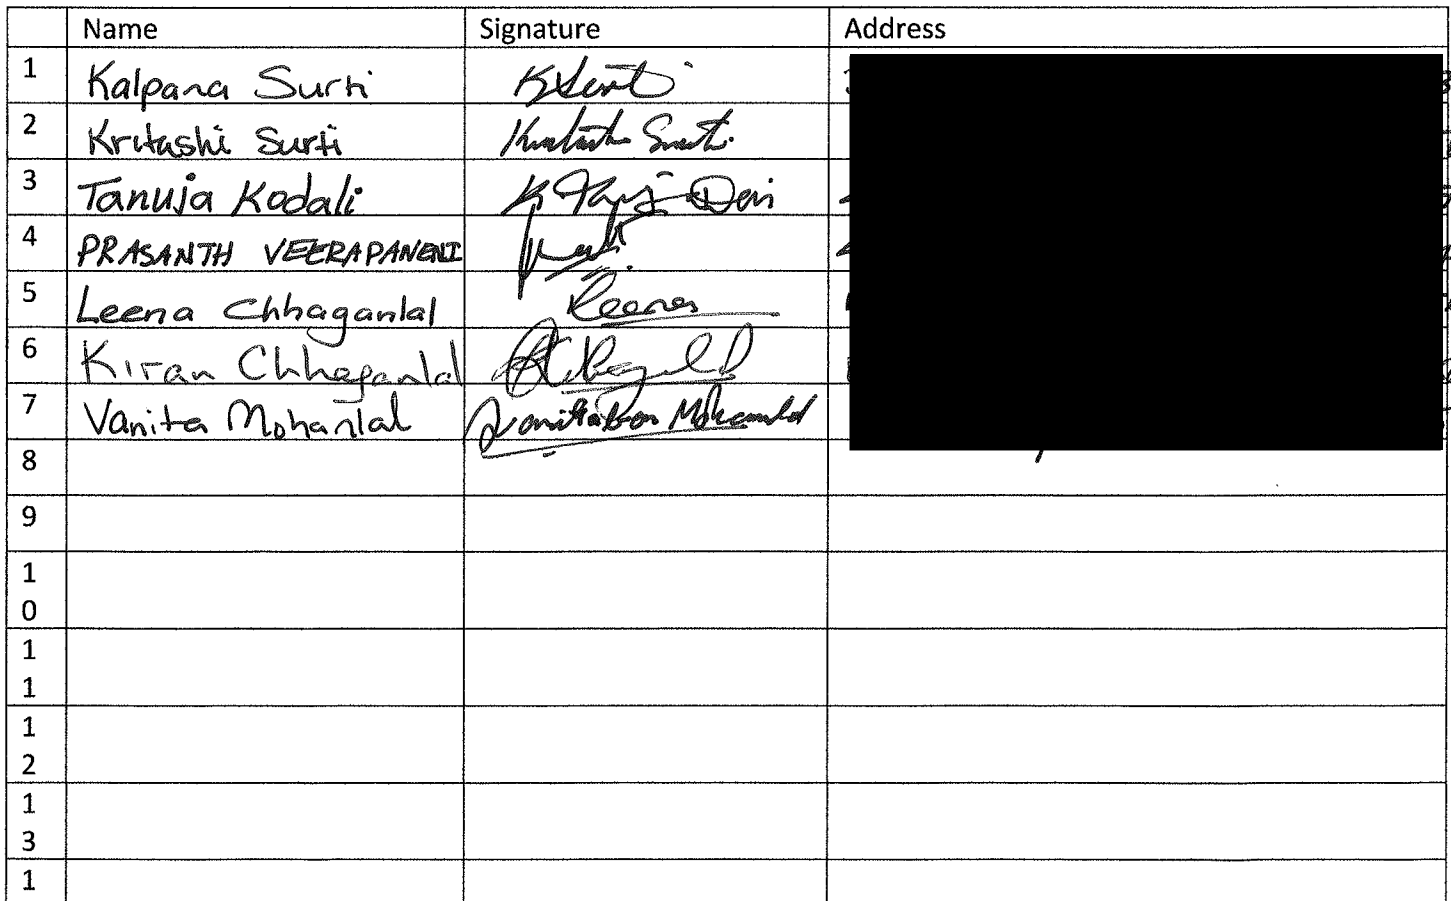 Name Signature Address
1 Kalpana Surti KSurti
2 Kritashi Surti Surti
3 Tanuja Kodali K Devi
4 PRASANTH VEERAPANENI
5 Leena Chhaganlal Leena
6 Kiran Chhaganlal
7 Vanita Mohanlal Vanitaben Mohanlal
8
9
1
0
1
1
1
2
1
3
1